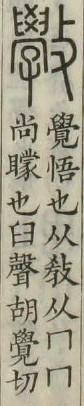 斆
覺悟也从敎从冂冂
尚矇也臼聲胡覺切